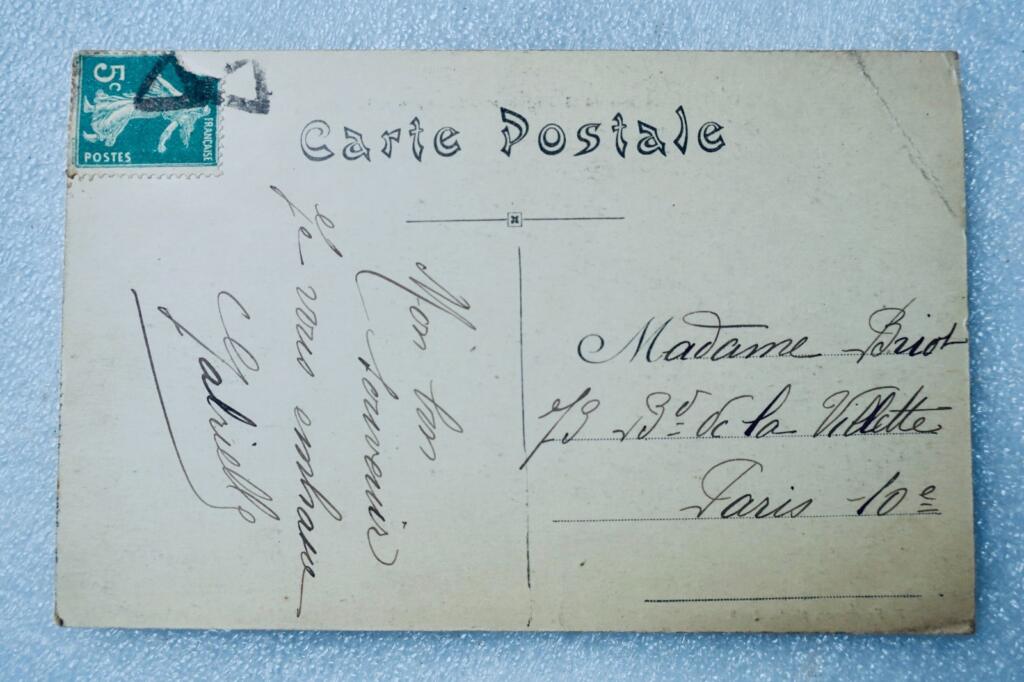 5c
FRANÇAISE
POSTES
Carte Postale
Mon bon
souvenir
et
je vous embrasse
Gabrielle
Madame Briot
73 Bd de la Villette
Paris 10e